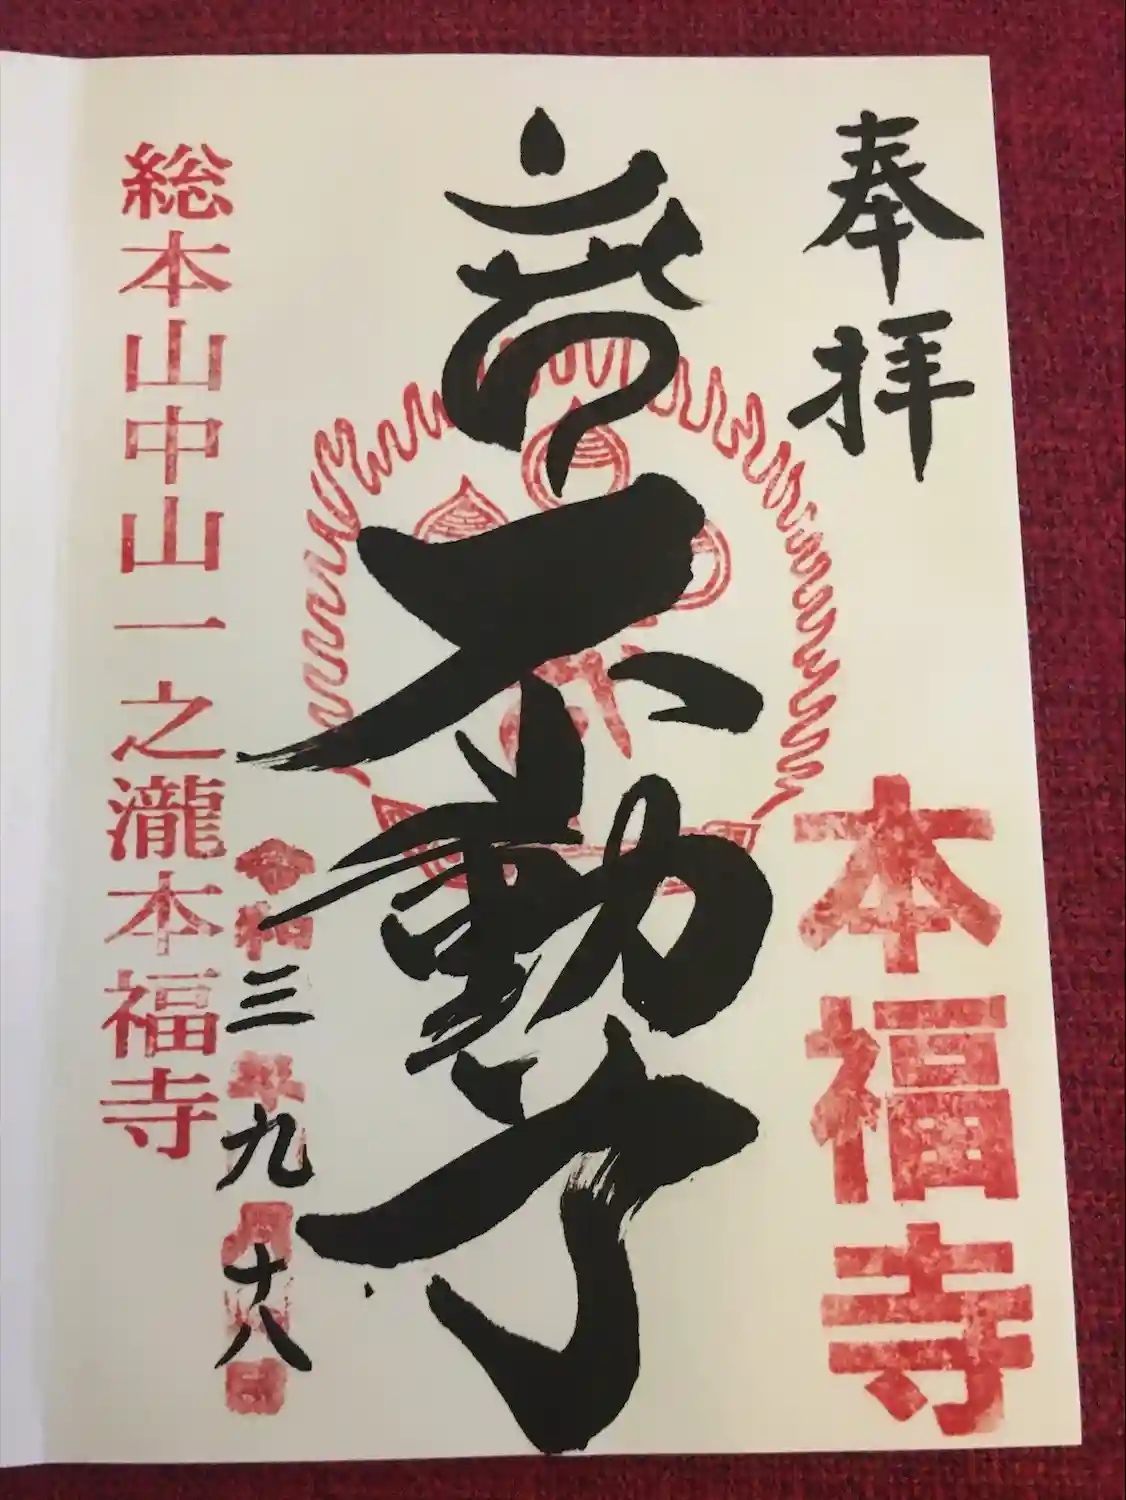 奉拝
本福寺
不動尊
令和三年九月十八日
総本山中山一之瀧本福寺